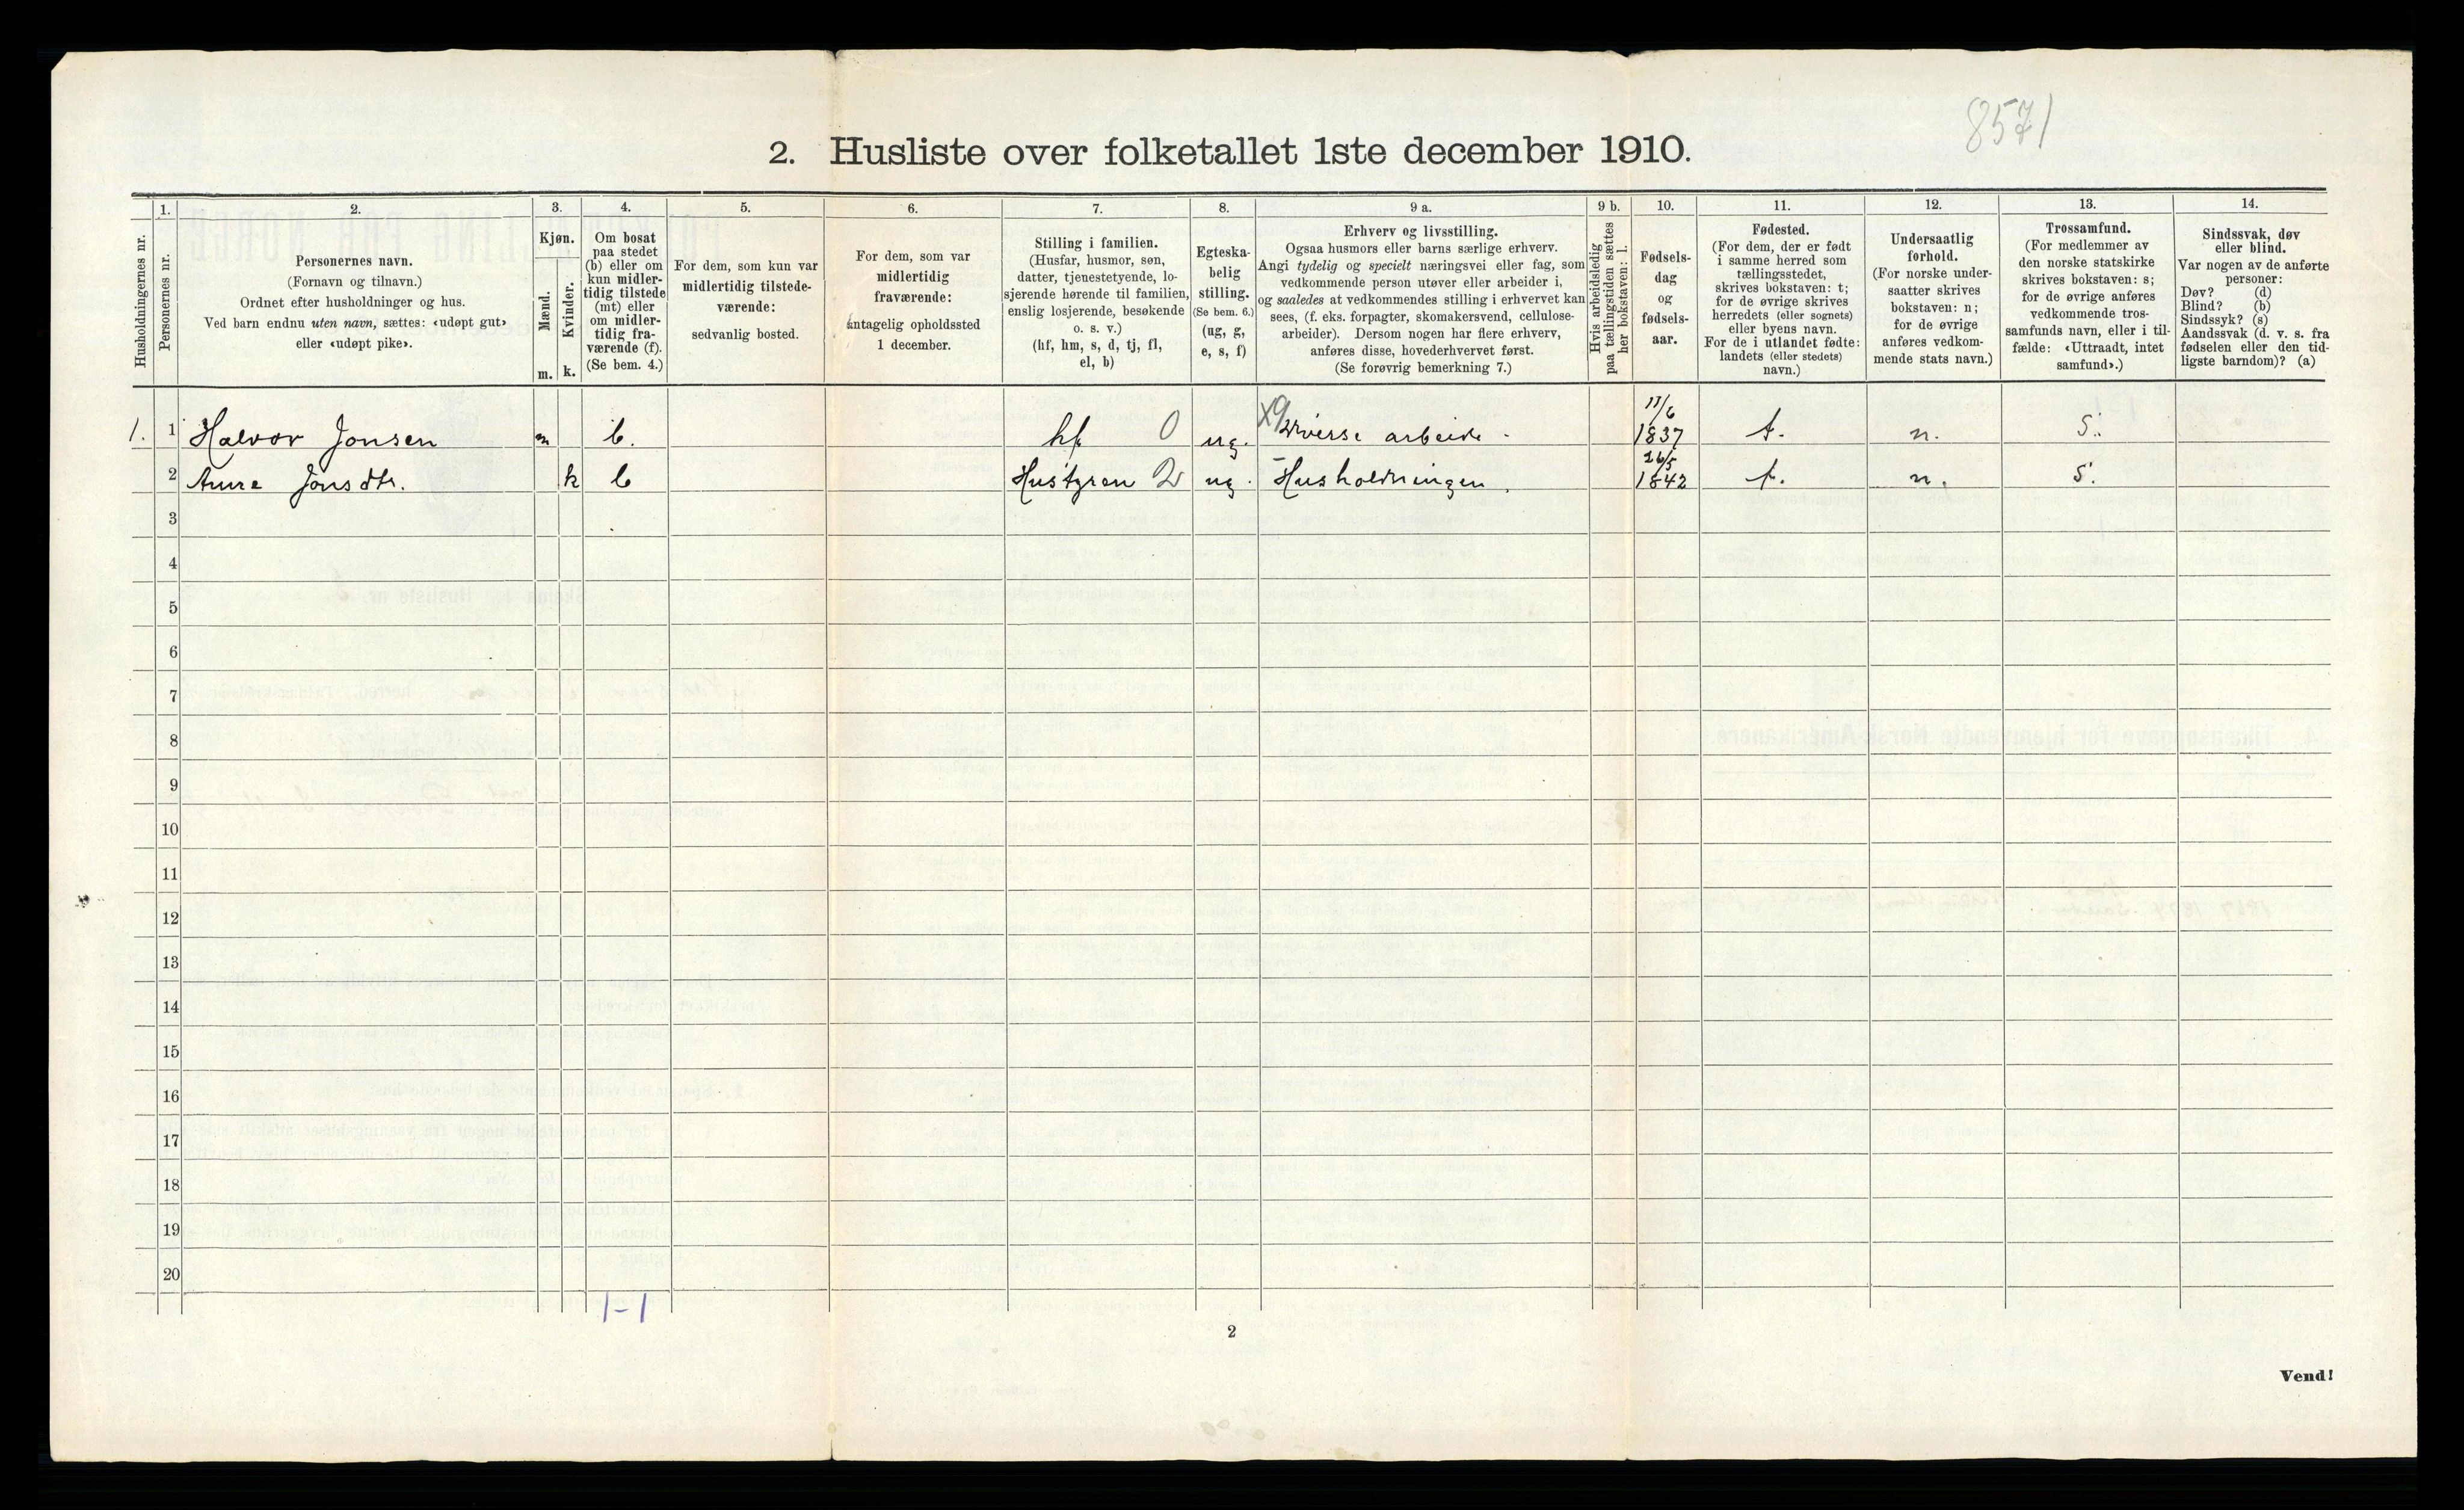 8571
2. Husliste over folketallet 1ste december 1910.
Husholdningernes nr.
1.
Personernes nr.
2.
Personernes navn.
(Fornavn og tilnavn.)
Ordnet efter husholdninger og hus.
Ved barn endnu uten navn, sættes: «udøpt gut»
eller «udøpt pike».
3.
Kjøn.
Mænd.
Kvinder.
m. k.
4.
Om bosat
paa stedet
(b) eller om
kun midler-
tidig tilstede
(mt) eller
om midler-
tidig fra-
værende (f).
(Se bem. 4.)
5.
For dem, som kun var
midlertidig tilstede-
værende:
sedvanlig bosted.
6.
For dem, som var
midlertidig
fraværende:
antagelig opholdssted
1 december.
7.
Stilling i familien.
(Husfar, husmor, søn,
datter, tjenestetyende, lo-
sjerende hørende til familien,
enslig losjerende, besøkende
o. s. v.)
(hf, hm, s, d, tj, fl,
el, b)
8.
Egteska-
belig
stilling.
(Se bem. 6.)
(ug, g,
e, s, f)
9 a.
Erhverv og livsstilling.
Ogsaa husmors eller barns særlige erhverv.
Angi tydelig og specielt næringsvei eller fag, som
vedkommende person utøver eller arbeider i,
og saaledes at vedkommendes stilling i erhvervet kan
sees, (f. eks. forpagter, skomakersvend, cellulose-
arbeider). Dersom nogen har flere erhverv,
anføres disse, hovederhvervet først.
(Se forøvrig bemerkning 7.)
9 b.
Hvis arbeidsledig
paa tællingstiden sættes
her bokstaven: l.
10.
Fødsels-
dag
og
fødsels-
aar.
11.
Fødested.
(For dem, der er født
i samme herred som
tællingsstedet,
skrives bokstaven: t;
for de øvrige skrives
herredets (eller sognets)
eller byens navn.
For de i utlandet fødte:
landets (eller stedets)
navn.)
12.
Undersaatlig
forhold.
(For norske under-
saatter skrives
bokstaven: n;
for de øvrige
anføres vedkom-
mende stats navn.)
13.
Trossamfund.
(For medlemmer av
den norske statskirke
skrives bokstaven: s;
for de øvrige anføres
vedkommende tros-
samfunds navn, eller i til-
fælde: «Uttraadt, intet
samfund».)
14.
Sindssvak, døv
eller blind.
Var nogen av de anførte
personer:
Døv? (d)
Blind? (b)
Sindssyk? (s)
Aandssvak (d. v. s. fra
fødselen eller den tid-
ligste barndom)? (a)
1. 1 Halvor Jonsen m b. hf 0 ug. X9 Diverse arbeide - 11/6 1837 t. n. S.
2 Anne Jonsdtr. k b Hustyren 2 ug. Husholdningen. 26/5 1842 t. n. S.
3
4
5
6
7
8
9
10
11
12
13
14
15
16
17
18
19
20
1-1
2
Vend!